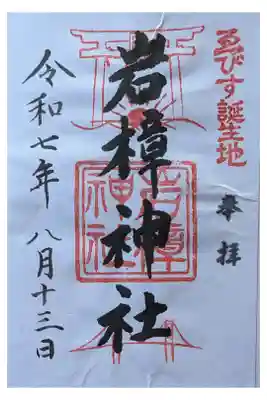 ゑびす誕生地
奉拝
岩樟神社
岩樟神社
令和七年 八月十三日